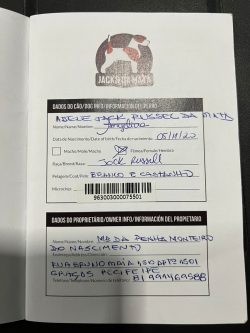 JACKS DA MATA
DADOS DO CÃO/DOG INFO/INFORMACIÓN DEL PERRO
ADELE JACK RUSSEL DA MATA
Nome/Name/Nombre:
Data de Nascimento/Date of birth/Fecha de nacimiento: 05/11/22
Macho/Male/Macho Fêmea/Female/Hembra
Raça/Breed/Raza: Jack Russell
Pelagem/Coat/Pelo: BRANCO E CASTANHO
Microchip:
963003000075501
DADOS DO PROPRIETÁRIO/OWNER INFO/INFORMACIÓN DEL PROPIETARIO
Nome/Name/Nombre: Mª DA PENHA MONTEIRO
DO NASCIMENTO
RUA BRUNO MAIA
GRAÇAS RECIFE PE